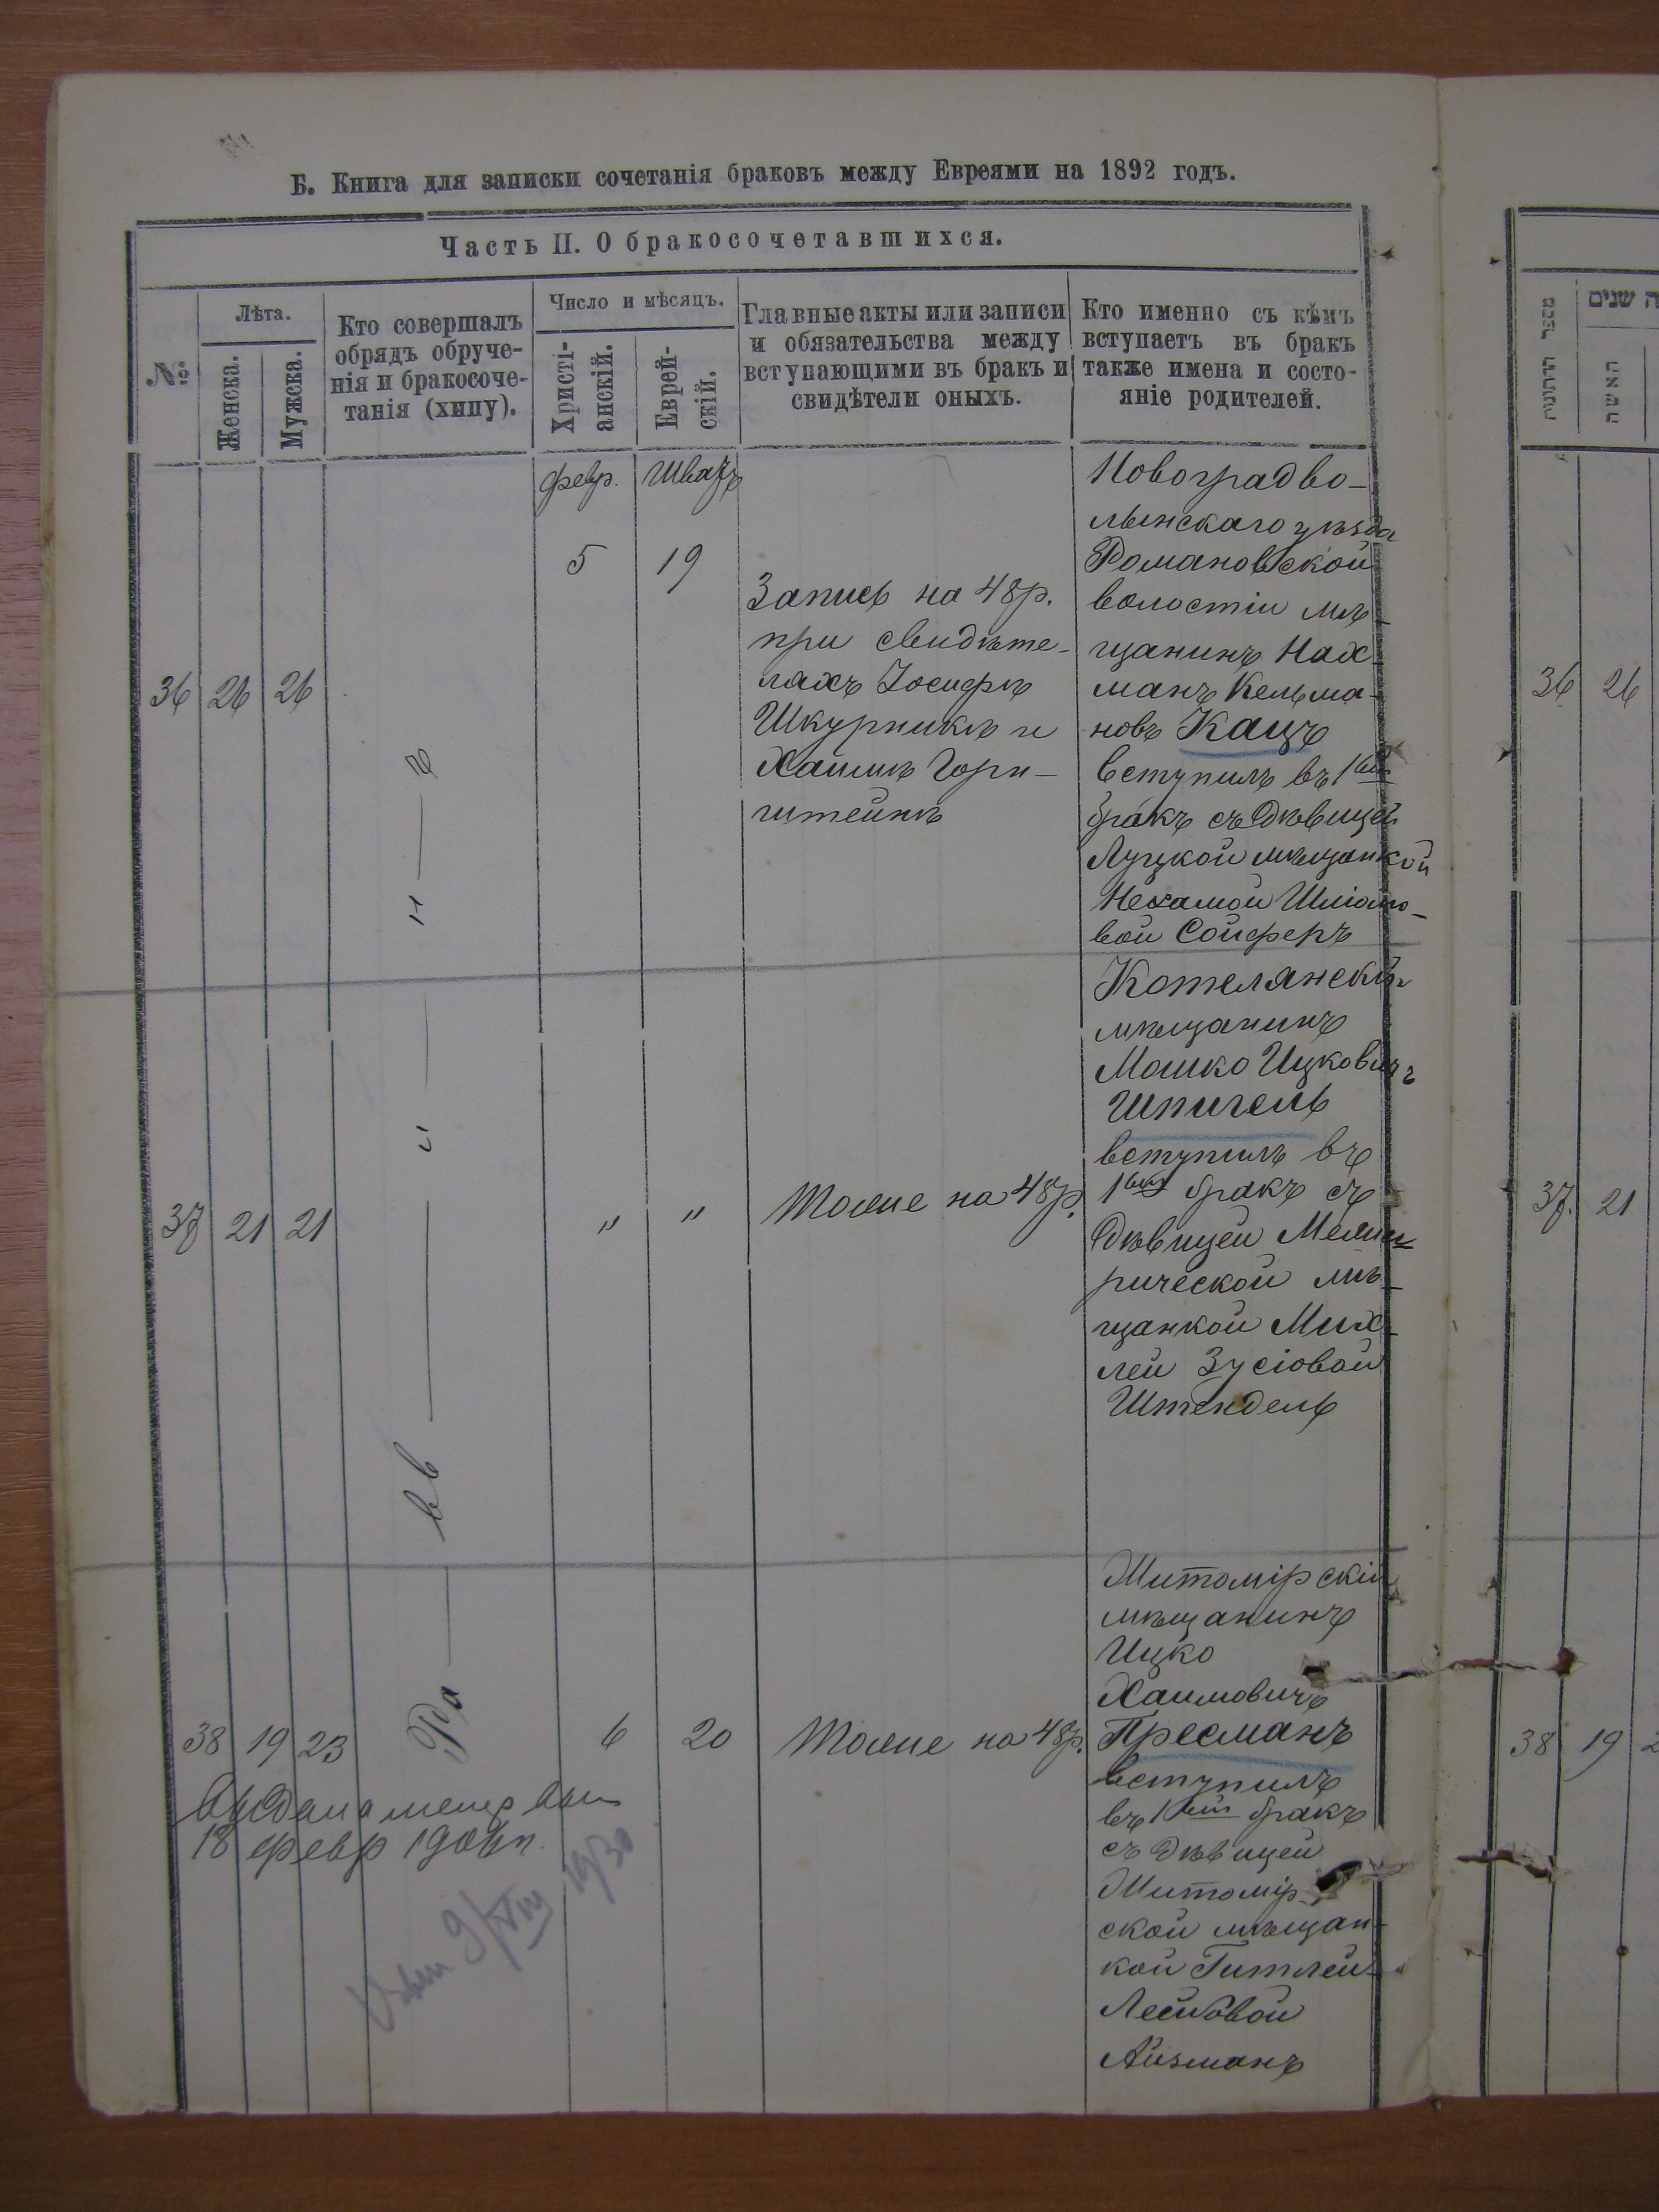 Б. Книга для записки сочетанія браковъ между Евреями на 1892 годъ.
Часть II. О бракосочетавшихся.
№
Лѣта.
Женска.
Мужска.
Кто совершалъ
обрядъ обруче-
нія и бракосоче-
танія (хипу).
Число и мѣсяцъ.
Христі-
анскій.
Еврей-
скій.
Главные акты или записи
и обязательства между
вступающими въ бракъ и
свидѣтели оныхъ.
Кто именно съ кѣмъ
вступаетъ въ бракъ
также имена и состо-
яніе родителей.
февр. Шватъ
36 26 26
5 19
Запись на 48 р.
при свидѣте-
ляхъ Іосифѣ
Шкурникѣ и
Хаимѣ Горн-
штейнѣ
Новоградво-
лынскаго уѣзда
Романовской
волостіи мѣ-
щанинъ Нах-
манъ Кельма-
новъ Кацъ
вступилъ въ 1ый
бракъ съ дѣвицей
Луцкой мѣщанкой
Нехамой Шліомо-
вой Сойферъ
37 21 21
" "
Тоже на 48 р.
Котелянскій
мѣщанинъ
Мошко Ицковичъ
Шпигель
вступилъ въ
1ый бракъ съ
дѣвицей Межи-
рической мѣ-
щанкой Мих-
лей Зусіовой
Штендель
Ра — вв — и — н — ъ
38 19 23
6 20
Тоже на 48 р.
Житомірскій
мѣщанинъ
Ицко
Хаимовичъ
Пресманъ
вступилъ
въ 1ый бракъ
съ дѣвицей
Житомір-
ской мѣщан-
кой Гитлей
Лейбовой
Айзманъ
18 февр
9/VIII 1930
מספר
ה שנים
האשה
36 26
37. 21
38 19 2